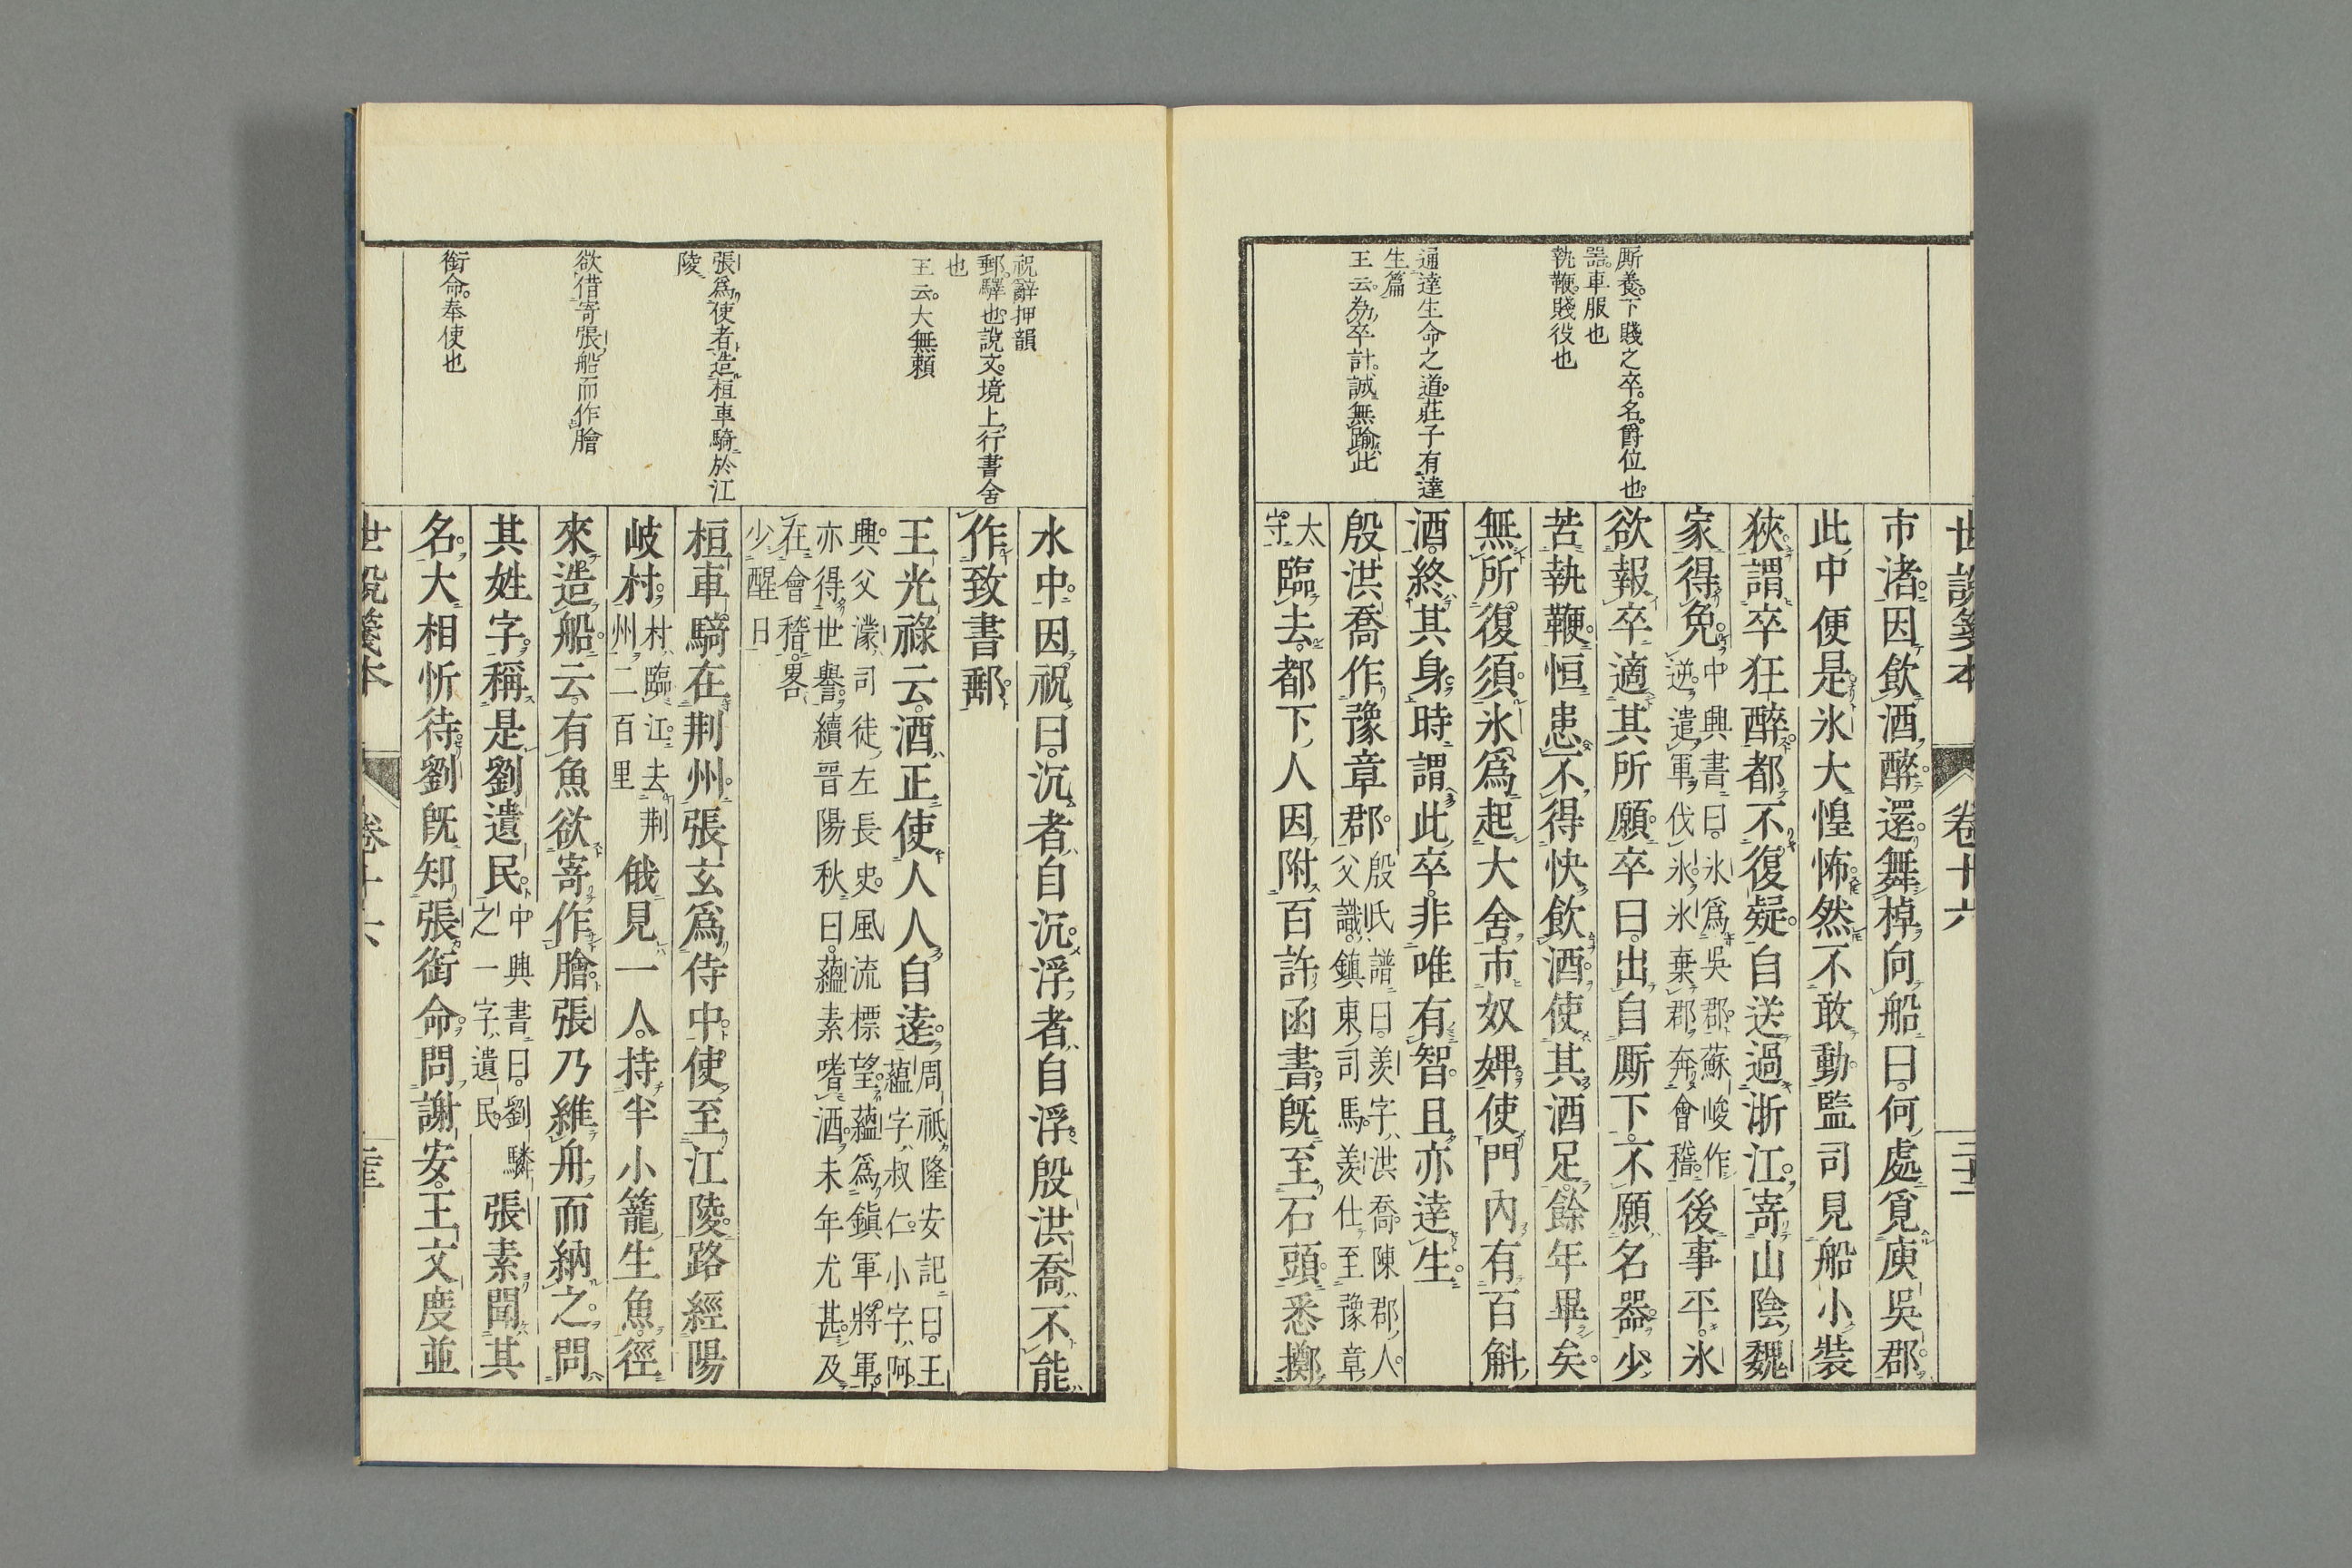 世說箋本
卷十六
厮養。下賤之卒。名。爵位也。
器。車服也
執鞭。賤役也
通達生命之道。莊子有達
生篇
王云。為卒計。誠無踰此
市渚。因飮酒醉還。舞棹向船曰。何處覓庾吳郡。
此中便是。氷大惶怖。然不敢動。監司見船小裝
狹。謂卒狂醉。都不復疑。自送過淛江。寄山陰魏
家得免。
中興書曰。氷爲吳郡。蘇峻作
逆。遣軍伐氷。氷棄郡奔會稽。
後事平。氷
欲報卒。適其所願。卒曰。出自厮下。不願名器。少
苦執鞭。恒患不得快飮酒。使其酒足餘年畢矣。
無所復須。氷爲起大舍。市奴婢。使門內有百斛
酒。終其身。時謂此卒。非唯有智。且亦達生。
殷洪喬作豫章郡。
殷氏譜曰。羨字洪喬。陳郡人。
父識。鎮東司馬。羨仕至豫章
太
守。
臨去。都下人因附百許函書。旣至石頭。悉擲
祝辭押韻
郵。驛也。說文。境上行書舍
也
王云。大無賴
張爲使者造桓車騎於江
陵
欲借寄張船而作膾
銜命。奉使也
水中。因祝曰。沉者自沉。浮者自浮。殷洪喬不能
作致書郵。
王光祿云。酒正使人人自遠。
周祇隆安記曰。王
蘊字叔仁。小字阿
興。父濛。司徒左長史。風流標望。蘊爲鎭軍將軍。
亦得世譽。續晉陽秋曰。蘊素嗜酒。未年尤甚。及
在會稽。畧
少醒日
桓車騎在荆州。張玄爲侍中。使至江陵。路經陽
岐村。
村臨江。去荆
州二百里
俄見一人。持半小籠生魚。徑
來造船云。有魚欲寄作膾。張乃維舟而納之。問
其姓字。稱是劉遺民。
中興書曰。劉驎
之一字遺民。
張素聞其
名。大相忻待。劉旣知張銜命。問謝安王文度並
世說箋本
卷十六